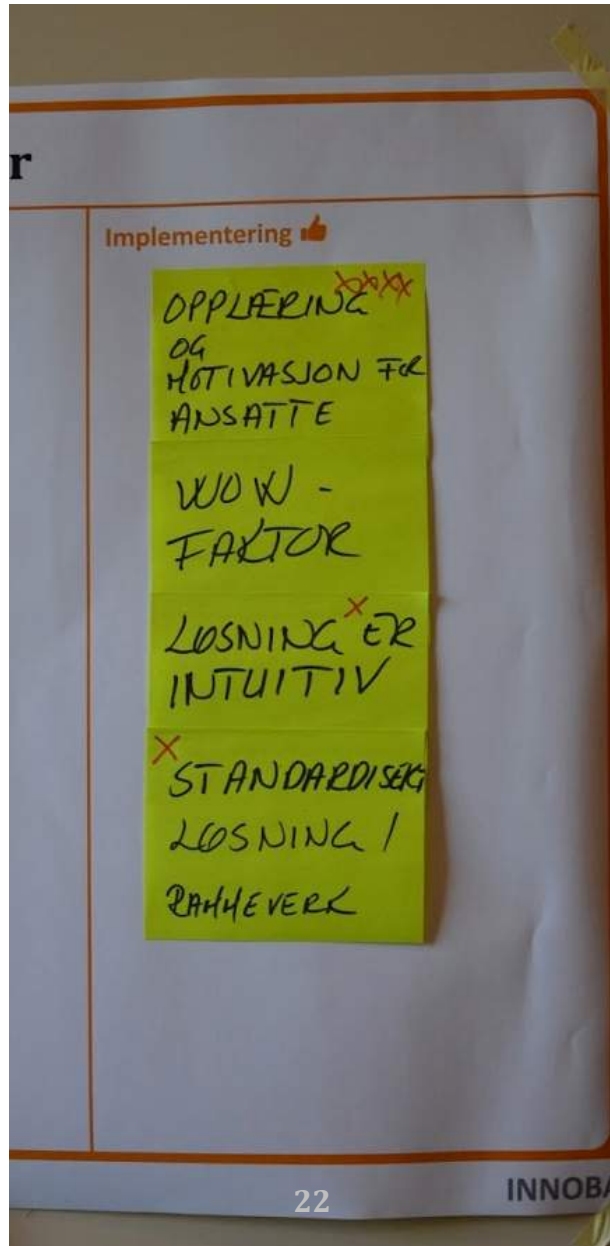 r
Implementering
OPPLÆRING XXXX
OG
MOTIVASJON FOR
ANSATTE
WOW -
FAKTOR
LØSNING X ER
INTUITIV
X
STANDARDISERT
LØSNING /
RAMMEVERK
22
INNOBA